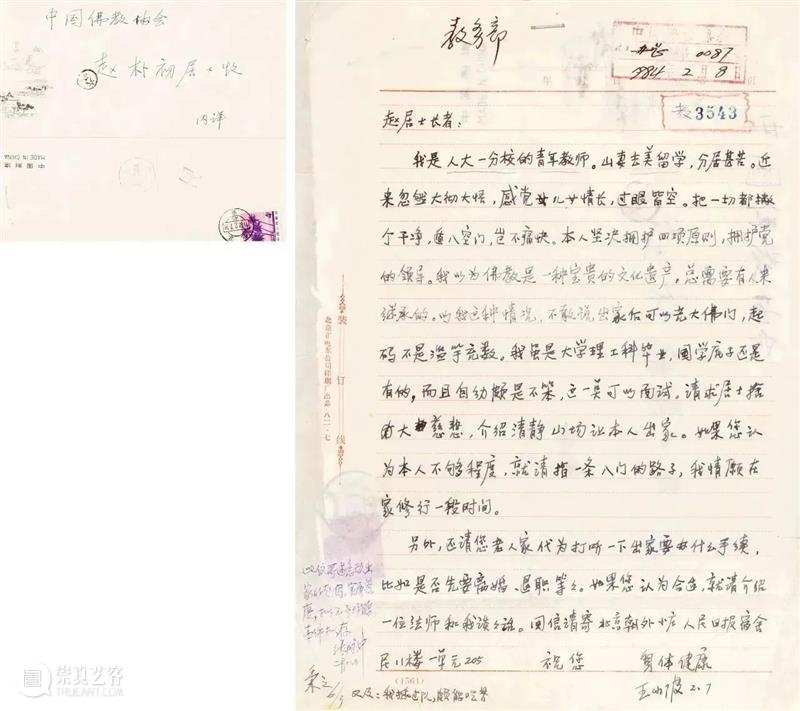 中国佛教协会
赵朴初居士收
内详
中国制造
MADE IN CHINA
教务部
0087
1984 2月8日
教3543
赵居士长者：
我是人大一分校的青年教师。山妻去美留学，分居甚苦。近
来忽然大彻大悟，感觉女儿女情长，过眼皆空。把一切都撇
个干净，遁入空门，岂不痛快。本人坚决拥护四项原则，拥护党
的领导。我以为佛教是一种宝贵的文化遗产，总需要有人来
继承的。以我这种情况，不敢说出家后可以光大佛门，起
码不是滥竽充数。我虽是大学理工科毕业，国学底子还是
有的，而且自幼颇是不笨，这一莫可以面试。请求居士捨
由大慈悲，介绍清静山场让本人出家。如果您认
为本人不够程度，就请指一条入门的路子，我情愿在
家修行一段时间。
另外，还请您老人家代为打听一下出家要办什么手续，
比如是否先要离婚、退职等等。如果您认为合适，就请介绍
一位法师和我谈谈。回信请寄北京朝外小庄人民日报宿舍
民11楼一单元205 祝您 身体健康
王小波 2.7
(1561)
又及：我 能吃苦
装订线
北京市电车公司印刷厂出品 八二·七
崇真艺客